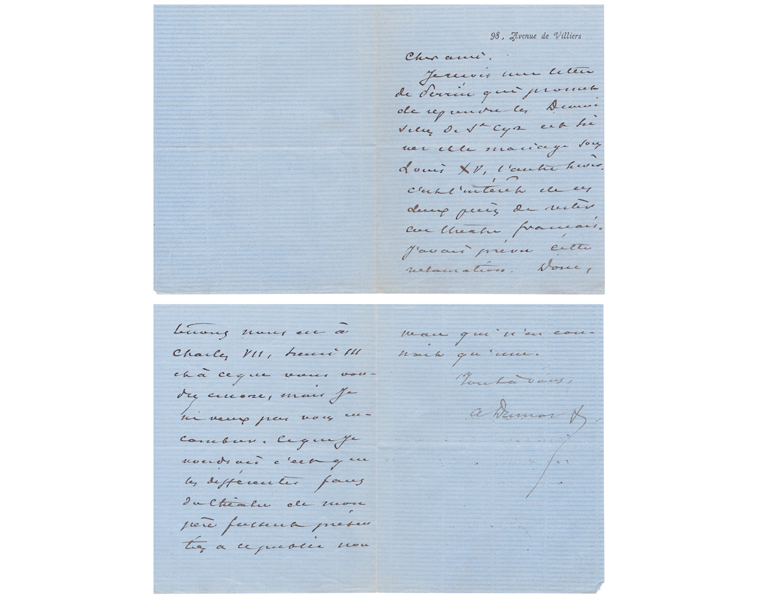 98, Avenue de Villiers
Cher ami.
Je reçois une lettre
de Perrin qui promet
de reprendre les Demoi
selles de St Cyr cet hi
ver et le mariage sous
Louis XV, l'autre hiver.
c'est l'intérêt de ces
deux pièces de rester
au théâtre français.
J'avais prévu cette
réclamation. Donc,
tenons nous en à
Charles VII, Henri III
et à ce que vous vou-
drez encore, mais je
ne veux pas vous en-
combrer. Ce que je
voudrais c'est que
les différentes faces
du théâtre de mon
père fussent présen
tées à ce public nou
veau qui n'en con-
nait qu'une.
Tout à vous,
A Dumas f